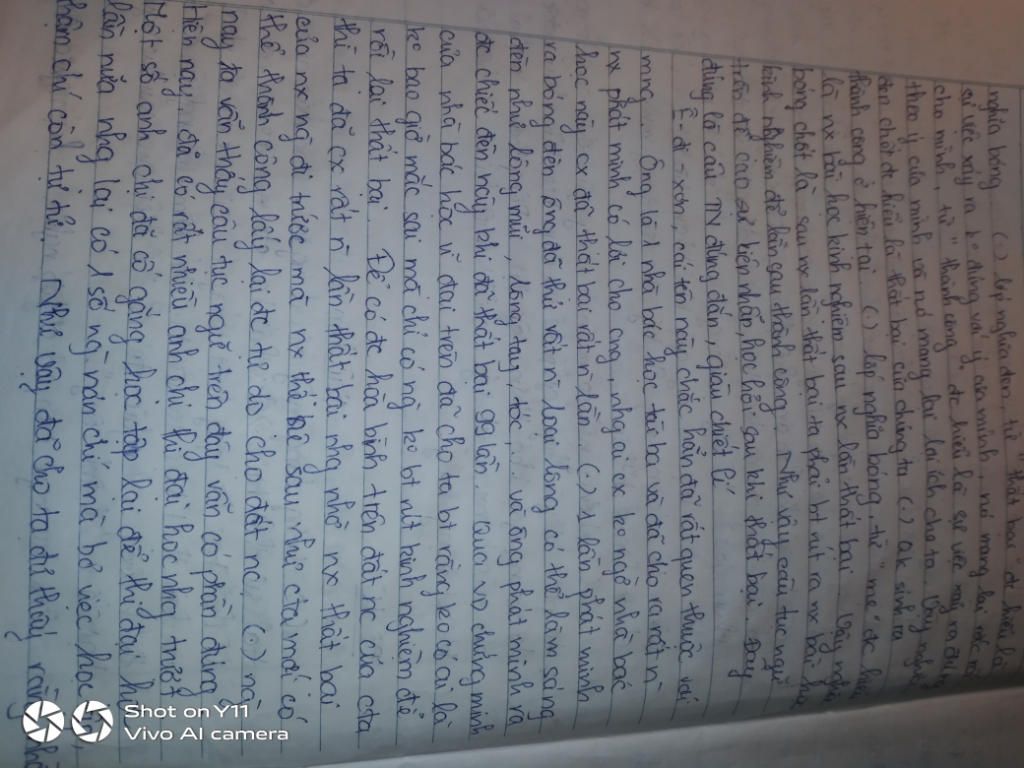 nghĩa bóng. (-) lớp nghĩa đen, từ " thất bại " đc hiểu là
sự vc xảy ra ko đúng vs ý của mình, nó mang lại
cho mình, từ " thành công " đc hiểu là sự vc xảy ra đúng
theo ý của mình và nó mang lại lợi ích cho ta. Vậy nghĩa
đen chỉ đc hiểu là thất bại của chúng ta (-) q.k sinh ra
thành công ở hiện tại. (-) lớp nghĩa bóng, từ " mẹ " đc hiểu
là nx bài học kinh nghiệm sau nx lần thất bại. Vậy nghĩa
bóng chốt là sau nx lần thất bại ta phải bt rút ra nx bài học
kinh nghiệm để lần sau thành công. Như vậy câu tục ngữ
trên đề cao sự kiên nhẫn, học hỏi sau khi thất bại. Đây
đúng là câu TN đúng đắn, giàu chiết lí
Ê-đi-xơn, cái tên này chắc hẳn đã rất quen thuộc với
mng. Ông là 1 nhà bác học tài ba và đã cho ra rất n`
nx phát minh có lợi cho mng, nhg ai cx ko ngờ nhà bác
học này cx đã thất bại rất n` lần. (-) 1 lần phát minh
ra bóng đèn ông đã thử rất n` loại lông có thể làm sáng
đèn như lông mũi, lông tay, tóc,... và ông phát minh ra
đc chiếc đèn này khi đã thất bại 99 lần. Qua vd chứng minh
của nhà bác học vĩ đại trên đã cho ta bt rằng ko có ai là
ko bao giờ mắc sai mà chỉ có ng` ko bt rút kinh nghiệm để
rồi lại thất bại. Để có đc hòa bình trên đất nc của cta
thì ta đã cx rất n` lần thất bại nhg nhờ nx thất bại
của nx ng` đi trước mà nx thế hệ sau như cta mới có
thể thành công lấy lại đc tự do cho đất nc. (-) n`
nay ta vẫn thấy câu tục ngữ trên đây vẫn có phần đúng
Hiện nay, đã có rất nhiều anh chị thi đại học nhg trượt
Một số anh chị đã cố gắng học tập lại để thi đại học
lần nữa nhg lại có 1 số ng` nản chí mà bỏ vc học
thậm chí còn tự tử. Như vậy đã cho ta dễ thấy rằng
Shot on Y11
Vivo AI camera